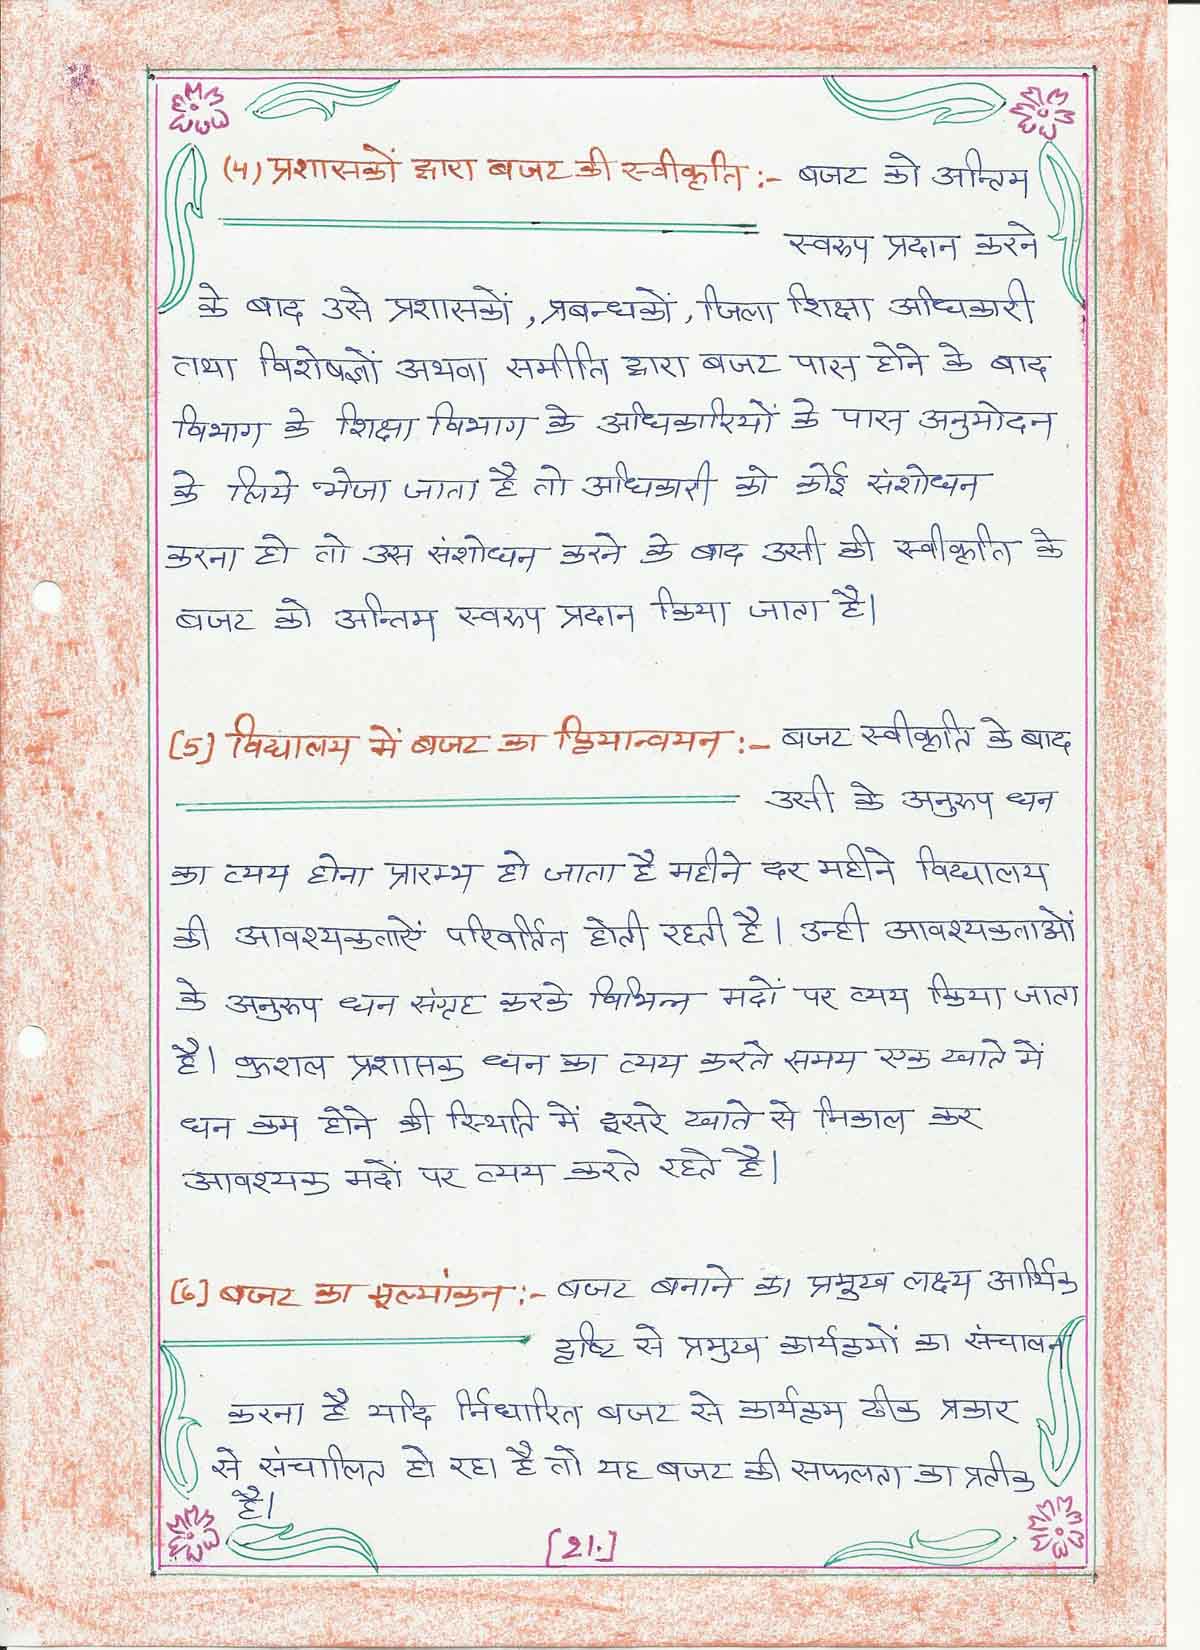 (4) प्रशासकों द्वारा बजट की स्वीकृति :- बजट को अन्तिम
स्वरुप प्रदान करने
के बाद उसे प्रशासकों, प्रबन्धकों, जिला शिक्षा अधिकारी
तथा विशेषज्ञों अथवा समीति द्वारा बजट पास होने के बाद
विभाग के शिक्षा विभाग के अधिकारियों के पास अनुमोदन
के लिये भेजा जाता है तो अधिकारी को कोई संशोधन
करना हो तो उस संशोधन करने के बाद उसी की स्वीकृति के
बजट को अन्तिम स्वरुप प्रदान किया जाता है।
[5] विद्यालय में बजट का क्रियान्वयन :- बजट स्वीकृति के बाद
उसी के अनुरुप धन
का व्यय होना प्रारम्भ हो जाता है महीने दर महीने विद्यालय
की आवश्यकताऐं परिवर्तित होती रहती है। उन्ही आवश्यकताओं
के अनुरुप धन संगृह करके विभिन्न मदों पर व्यय किया जाता
है। कुशल प्रशासक धन का व्यय करते समय एक खाते में
धन कम होने की स्थिति में दूसरे खाते से निकाल कर
आवश्यक मदों पर व्यय करते रहते है।
[6] बजट का मूल्यांकन :- बजट बनाने का प्रमुख लक्ष्य आर्थिक
दृष्टि से प्रमुख कार्यक्रमों का संचालन
करना है यदि निर्धारित बजट से कार्यक्रम ठीक प्रकार
से संचालित हो रहा है तो यह बजट की सफलता का प्रतीक
है।
[21.]